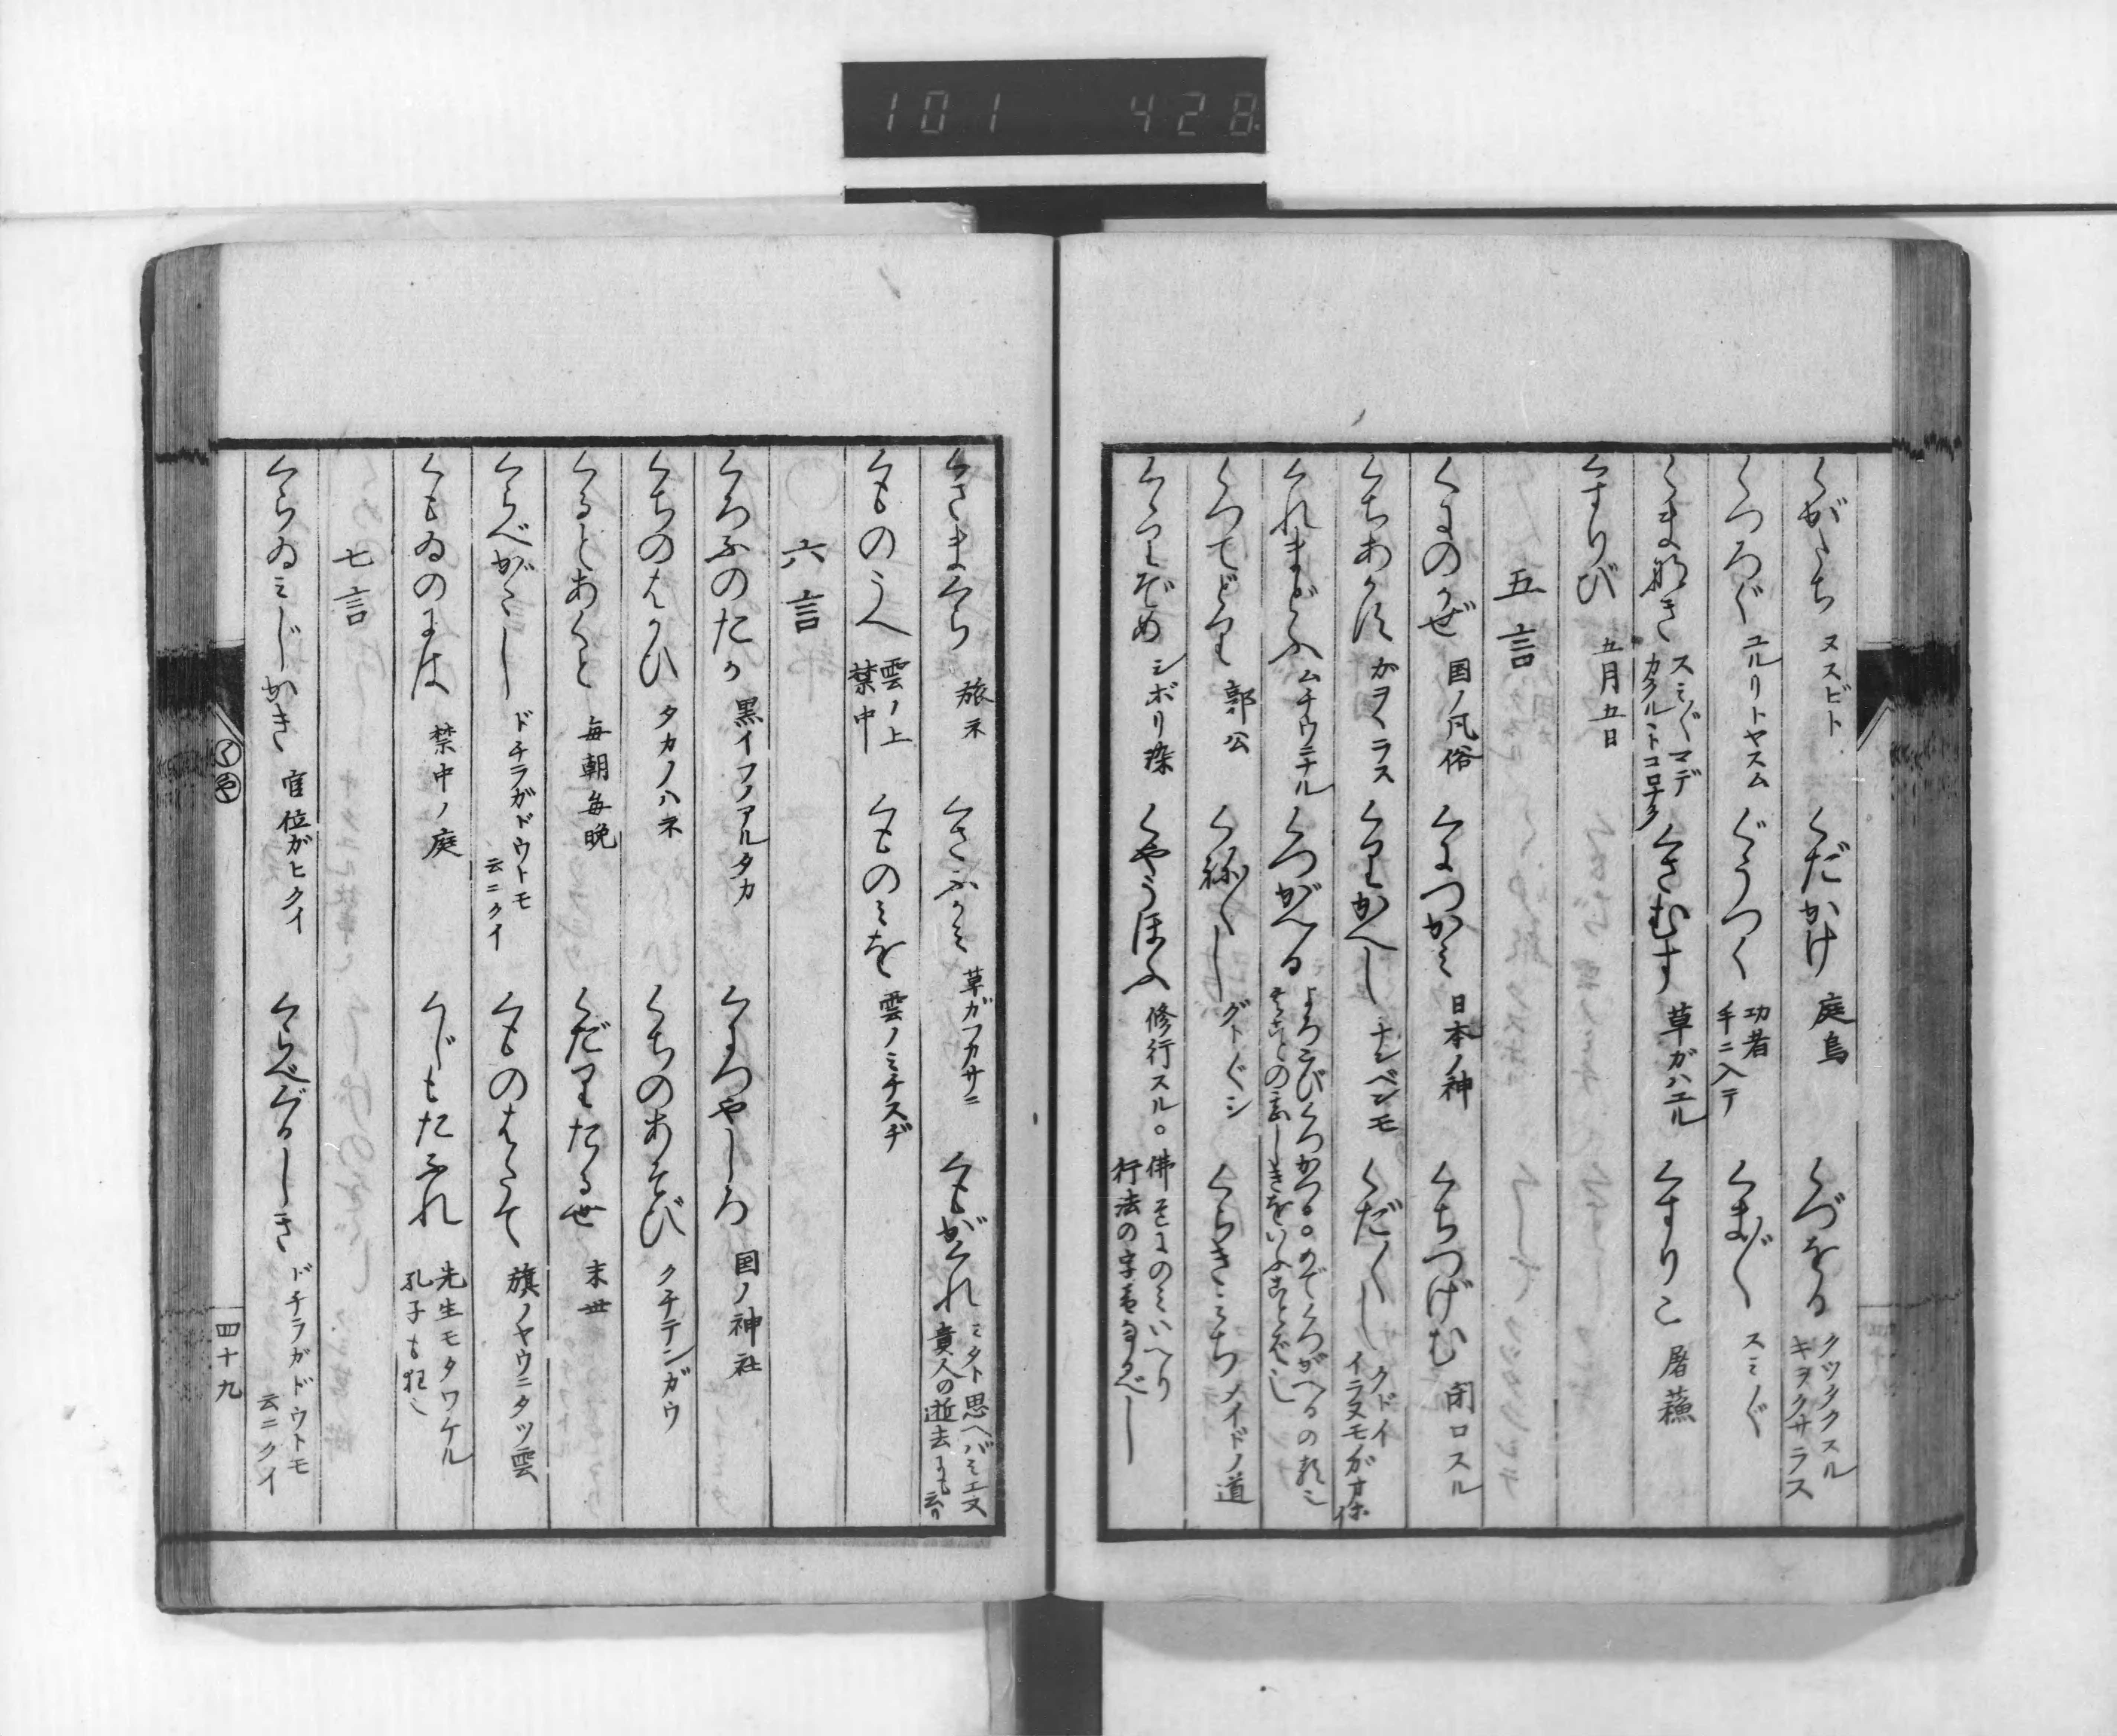 101 428
くがたち ヌスビト くだかけ 庭鳥 くづをる クツタクスル キヲクサラス
くつろぐ ユルリトヤスム ぐうつく 功者 手ニ入テ くま〴〵 スミ〴〵
くまなき スミ〴〵マデ カクルヽトコロナク くさむす 草ガハエル くすりこ 屠蘓
くすりび 五月五日
五言
くにのかぜ 国ノ凡俗 くにつかミ 日本ノ神 くちつげむ 閉口スル
くちあかす くりかへし ナンベンモ くだ〳〵し クドイ
くれまどふ ムチウニナル くつがへる
くつてどり 郭公 くね〳〵し グト〴〵シ くらきミち メイドノ道
くゝりぞめ シボリ染 くやうほふ 修行スル。佛そにのミいへり 行法の字音なるべし
くさまくら 旅ネ くさふかミ 草ガフカサニ くもがくれ ミタト思ヘバミエヌ 貴人の逝去にも云り
くものうへ 雲ノ上 禁中 くものミを 雲ノミチスヂ
〇六言
くろふのたか 黒イフノアルタカ くにつやしろ 国ノ神社
くちのはかひ タカノハネ くちのあそび クチテンガウ
くるとあくと 毎朝毎晩 くだりたる世 末世
くらべがたし ドチラガドウトモ云ニクイ くものはたて 旗ノヤウニタツ雲
くもゐのには 禁中ノ庭 くじもたふれ 先生モタワケル 孔子も狂
七言
くらゐミじかき 官位がヒクイ くらべぐるしき ドチラガドウトモ云ニクイ
くや
四十九